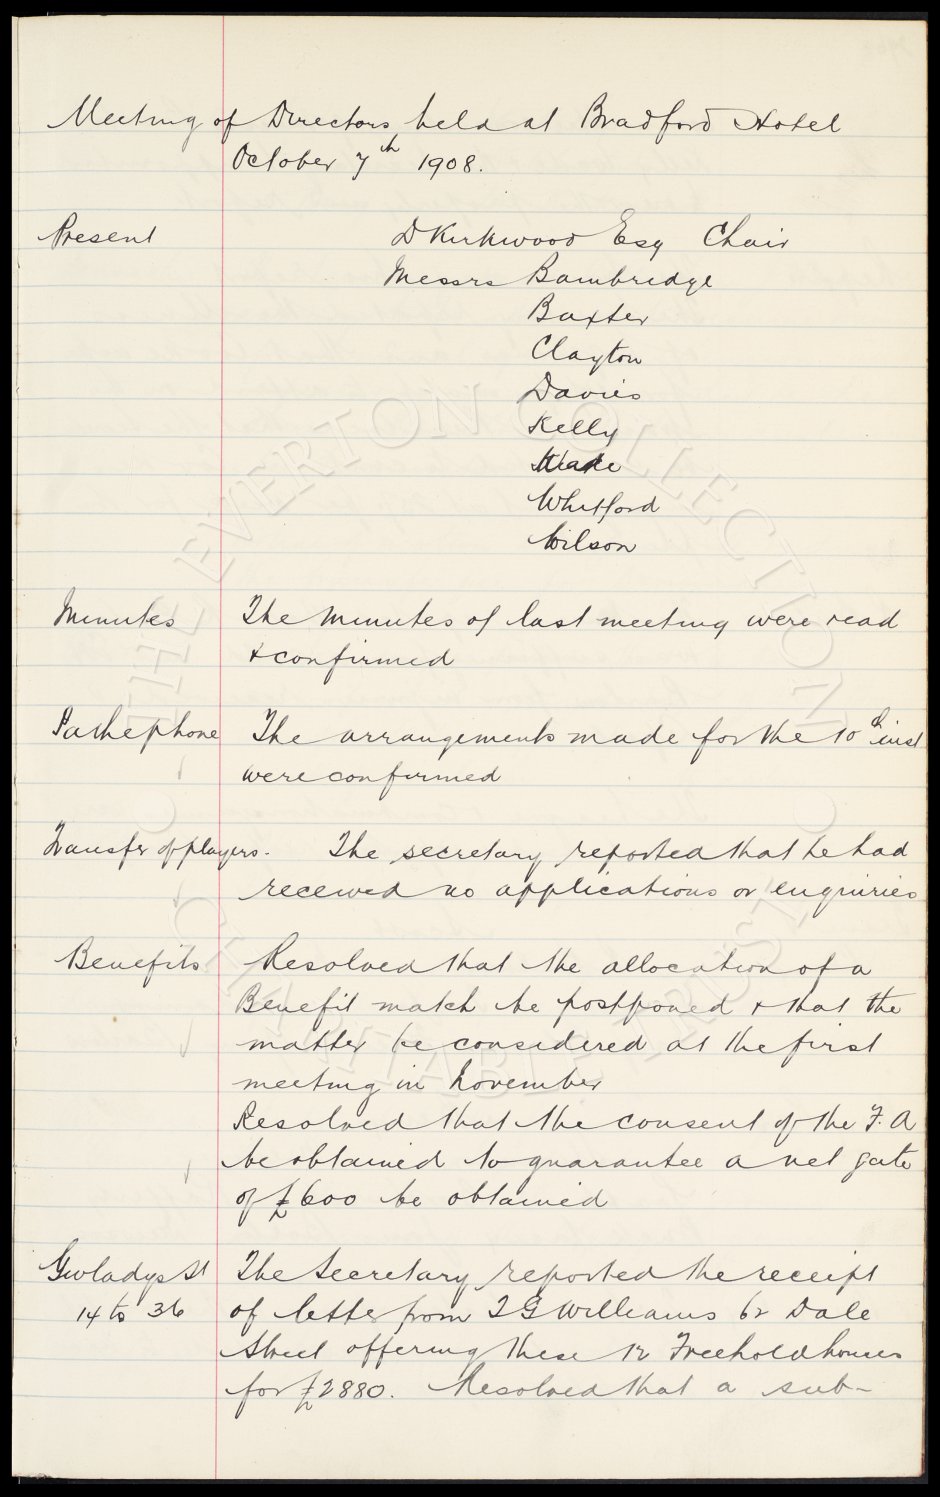 Meeting of Directors, held at Bradford Hotel
October 7th 1908.
Present D Kirkwood Esq Chair
Messrs Bambridge
Baxter
Clayton
Davies
Kelly
Wade
Whitford
Wilson
Minutes The minutes of last meeting were read
& confirmed
Pathephone The arrangements made for the 10th inst
were confirmed
Transfer of players. The secretary reported that he had
received no applications or enquiries
Benefits Resolved that the allocation of a
Benefit match be postponed & that the
matter be considered at the first
meeting in November
Resolved that the consent of the F.A
be obtained to guarantee a net gate
of £600 be obtained
Gwladys St The Secretary reported the receipt
14 to 36 of letter from T G Williams 62 Dale
Street offering these 12 Freehold houses
for £2880. Resolved that a sub-
THE EVERTON COLLECTION
CHARITABLE TRUST